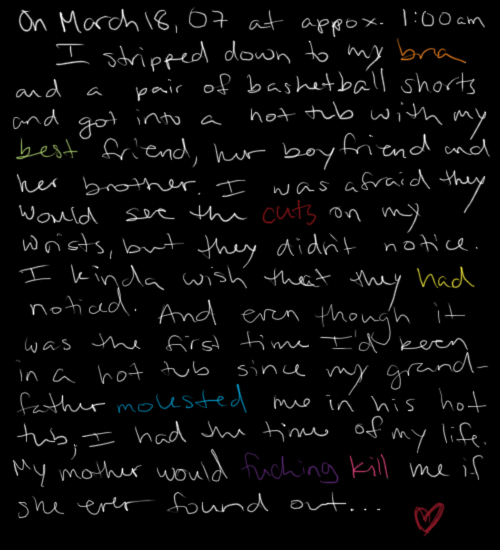 On March 18, 07 at appox. 1:00am
I stripped down to my bra
and a pair of basketball shorts
and got into a hot tub with my
best friend, her boyfriend and
her brother. I was afraid they
would see the cuts on my
wrists, but they didn't notice.
I kinda wish that they had
noticed. And even though it
was the first time I'd been
in a hot tub since my grand-
father molested me in his hot
tub, I had the time of my life.
My mother would fucking kill me if
she ever found out...